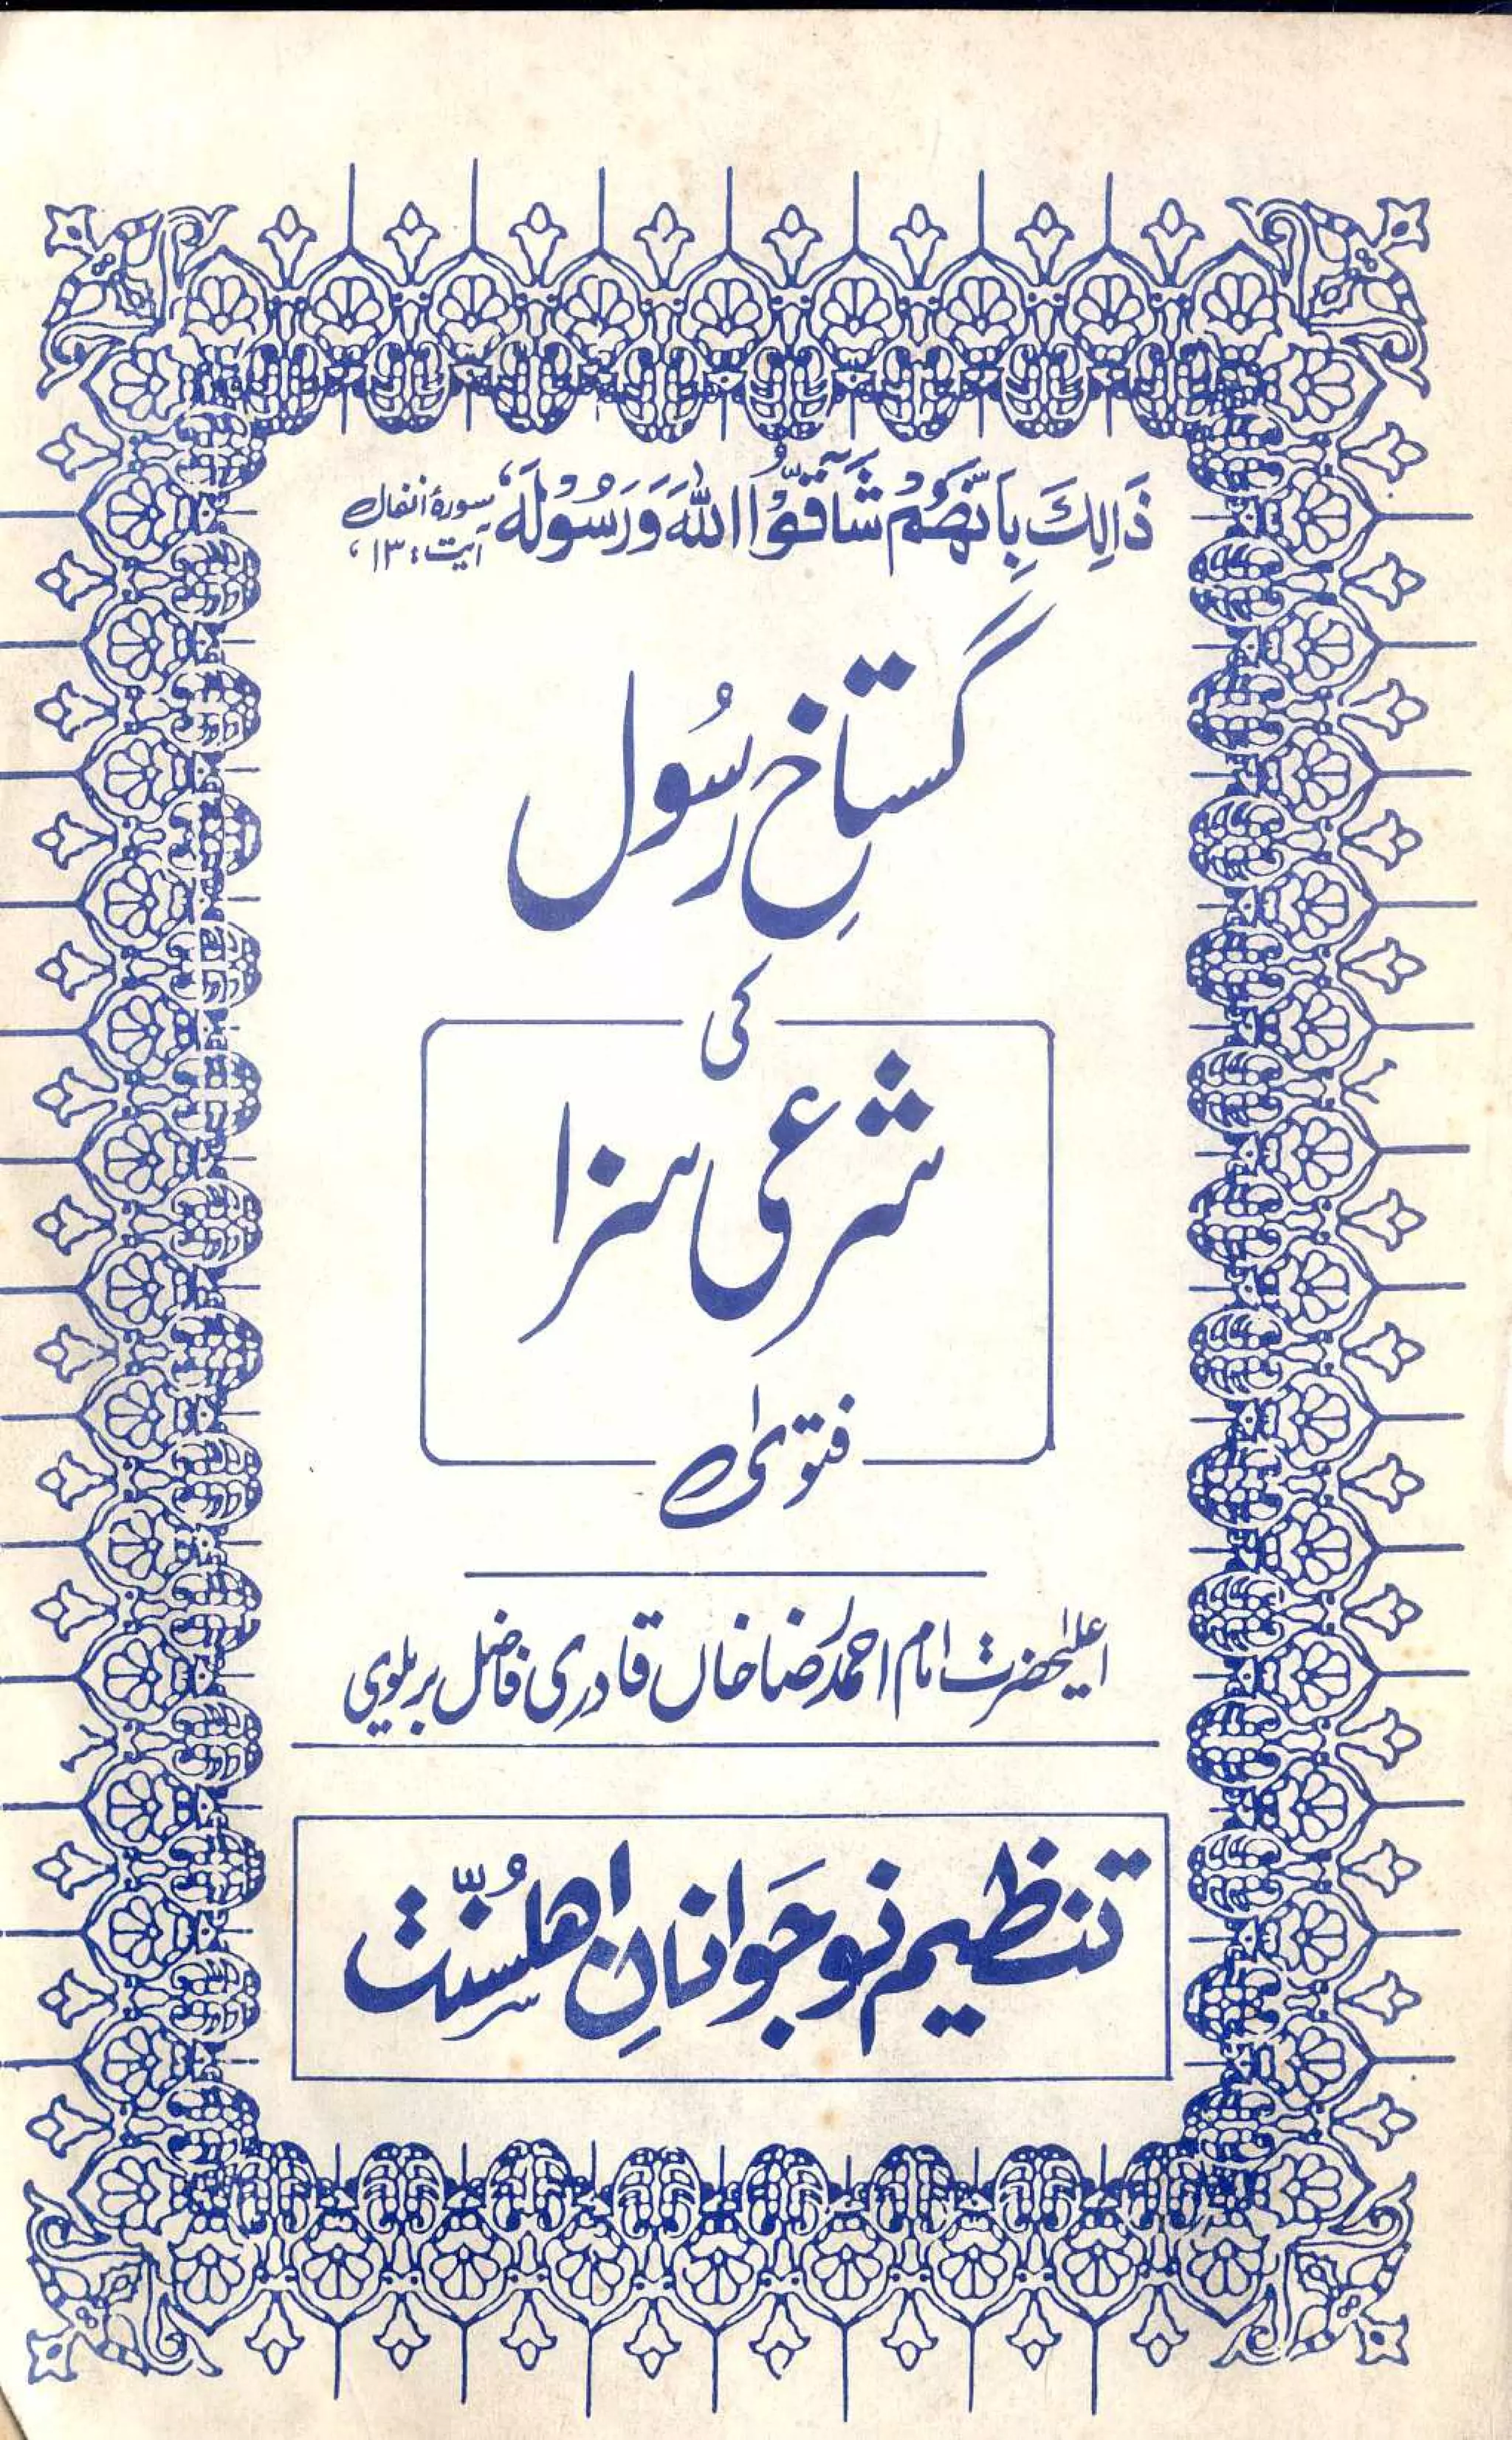 ذَالِكَ بِاَنَّهُمْ شَآقُّوا اللّٰهَ وَرَسُوْلَهٗ، سورۂ انفال آیت: ۱۳،
گستاخِ رسُول
کی
شرعی سزا
فتویٰ
اعلیٰحضرت امام احمد رضا خاں قادری فاضل بریلوی
تنظیم نوجَوانانِ اھلسُنّت